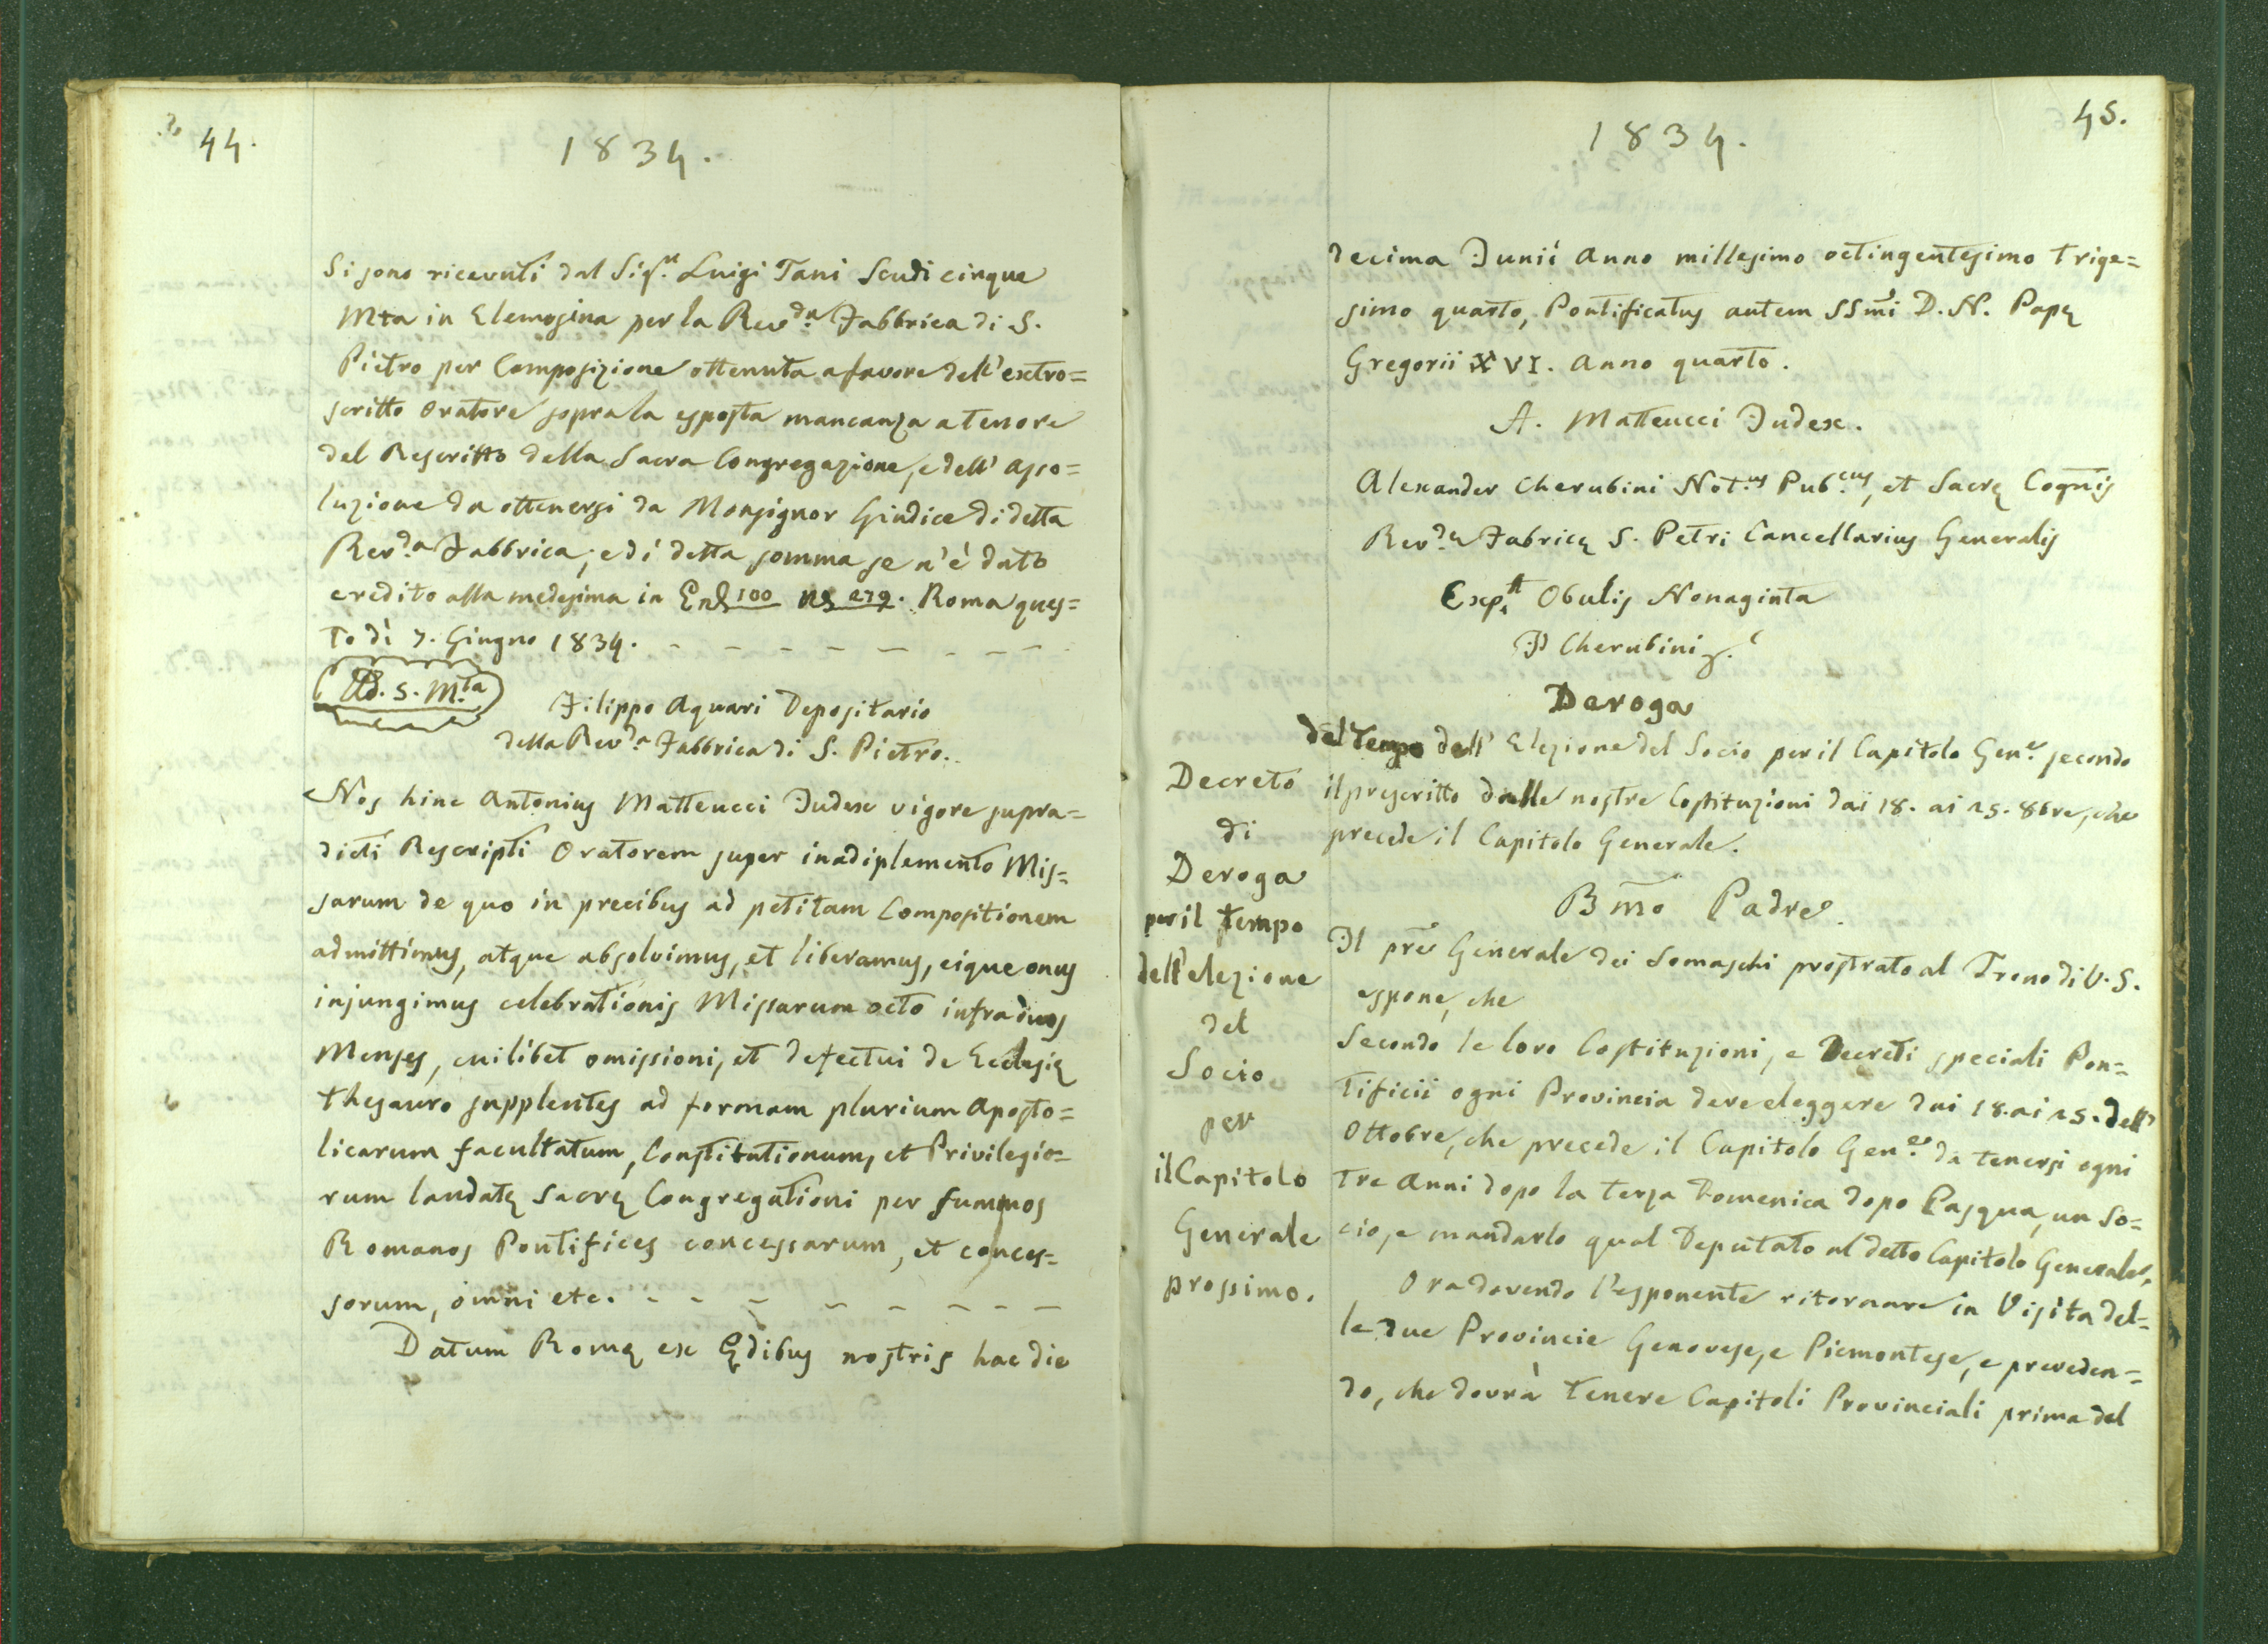 44.
1834.
Si sono ricevuti dal Sig.r Luigi Tani Scudi cinque
Mta in Elemosina per la Rev.da Fabbrica di S.
Pietro per Composizione ottenuta a favore dell'extro=
scritto Oratore sopra la esposta mancanza a tenore
del Rescritto della Sacra Congregazione, e dell'Asso=
luzione da ottenersi da Monsignor Giudice di detta
Rev.da Fabbrica; e di detta somma se n'è dato
credito alla medesima in 100 279. Roma ques=
to dì 7. Giugno 1834. - - - - - - - - -
S. 5. M.ta
Filippo Aquari Depositario
della Rev.da Fabbrica di S. Pietro.
Nos hinc Antonius Matteucci Judex vigore supra=
dicti Rescripti Oratorem super inadiplemento Mis=
sarum de quo in precibus ad petitam Compositionem
admittimus, atque absolvimus, et liberamus, eique onus
injungimus celebrationis Missarum octo infra duos
Menses, cuilibet omissioni, et defectui de Ecclesię
thesauro supplentes ad formam plurium Aposto=
licarum facultatum, Constitutionum, et Privilegio=
rum laudatę Sacrę Congregationi per summos
Romanos Pontifices concessarum, et conces=
sorum, omni etc. - - - - - - - -
Datum Romę ex Ędibus nostris hac die
45.
1834.
decima Junii Anno millesimo octingentesimo trige=
simo quarto, Pontificatus autem SSmi D. N. Papę
Gregorii XVI. Anno quarto.
A. Matteucci Judex.
Alexander Cherubini Not.us Pub.cus, et Sacrę Cognis
Rev.dę Fabricę S. Petri Cancellarius Generalis
Exp.tt Obulis Nonaginta
Cherubini
Deroga
del Tempo dell'Elezione del Socio per il Capitolo Gen.e secondo
il prescritto dalle nostre Costituzioni dai 18. ai 25. 8bre, che
precede il Capitolo Generale.
Decreto
di
Deroga
per il tempo
dell'elezione
del
Socio
per
il Capitolo
Generale
prossimo.
Bmo Padre.
Il pre Generale dei Somaschi prostrato al Trono di V. S.
espone, che
Secondo le loro Costituzioni, e Decreti speciali Pon=
tificii ogni Provincia deve eleggere dai 18. ai 25. dell'
Ottobre, che precede il Capitolo Gen.e da tenersi ogni
tre Anni dopo la terza Domenica dopo Pasqua, un So=
cio, e mandarlo qual Deputato al detto Capitolo Generale.
Ora dovendo l'esponente ritornare in Visita del=
le due Provincie Genovese, e Piemontese, e preveden=
do, che dovrà tenere Capitoli Provinciali prima del